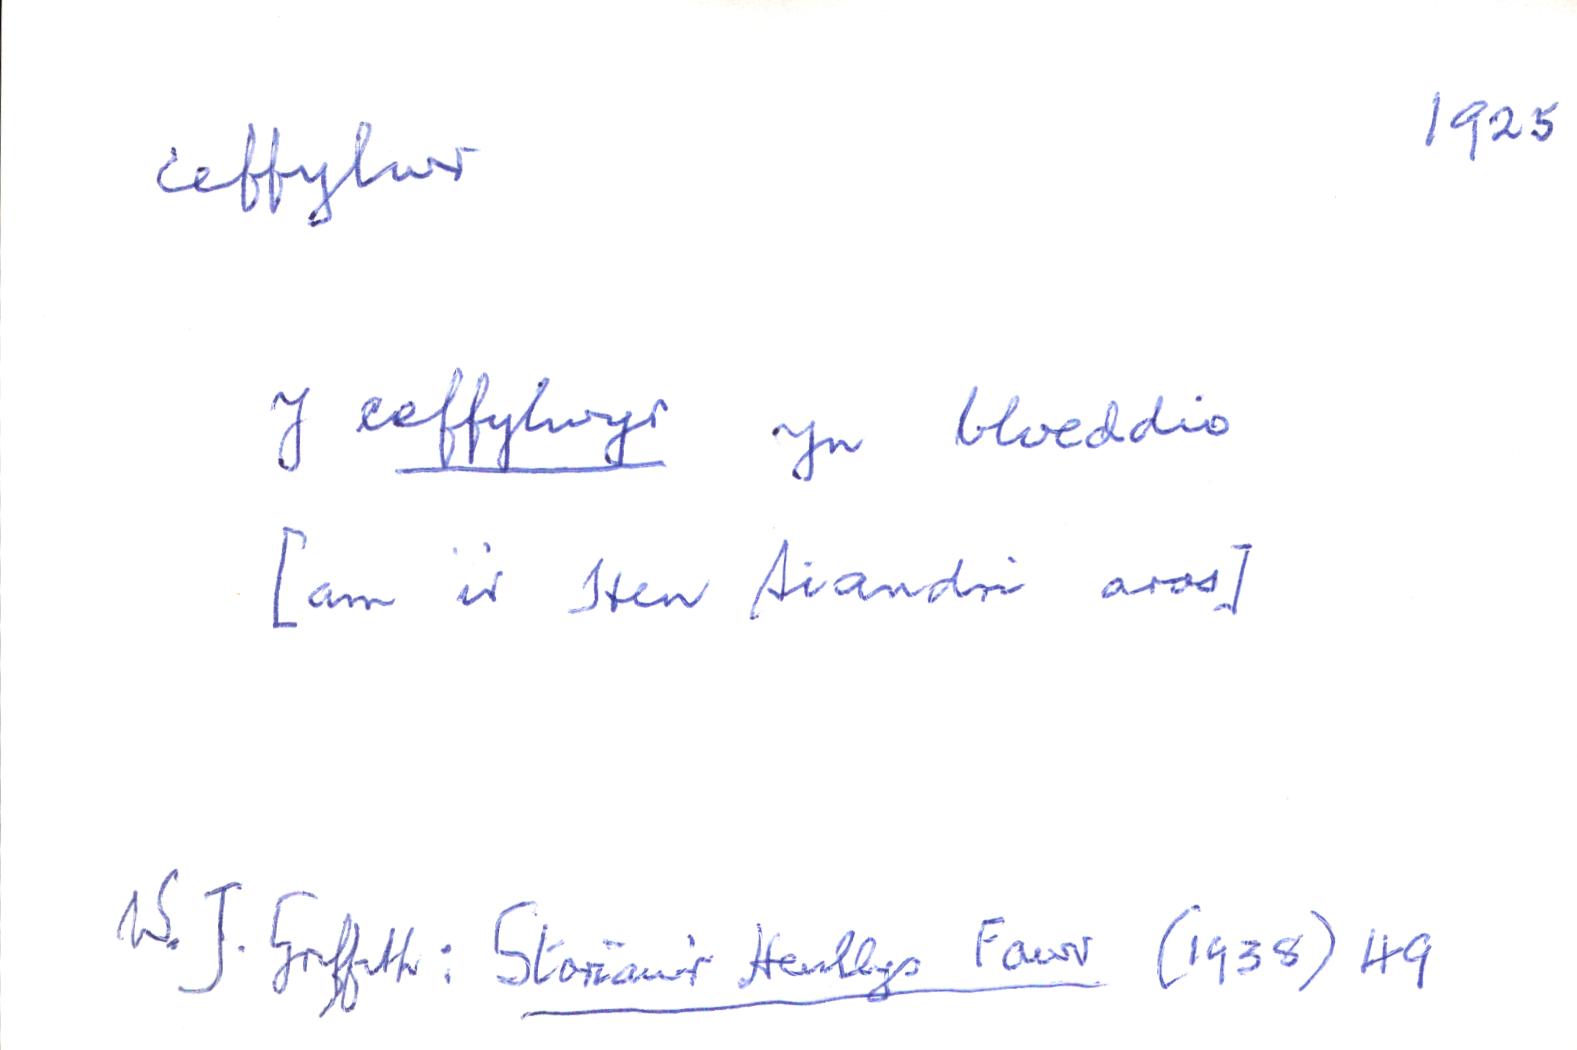 ceffylwr 1925
Y ceffylwyr yn bloeddio
[am i'r hen siandri aros]
W. J. Griffith: Storïau'r Henllys Fawr (1938) 49